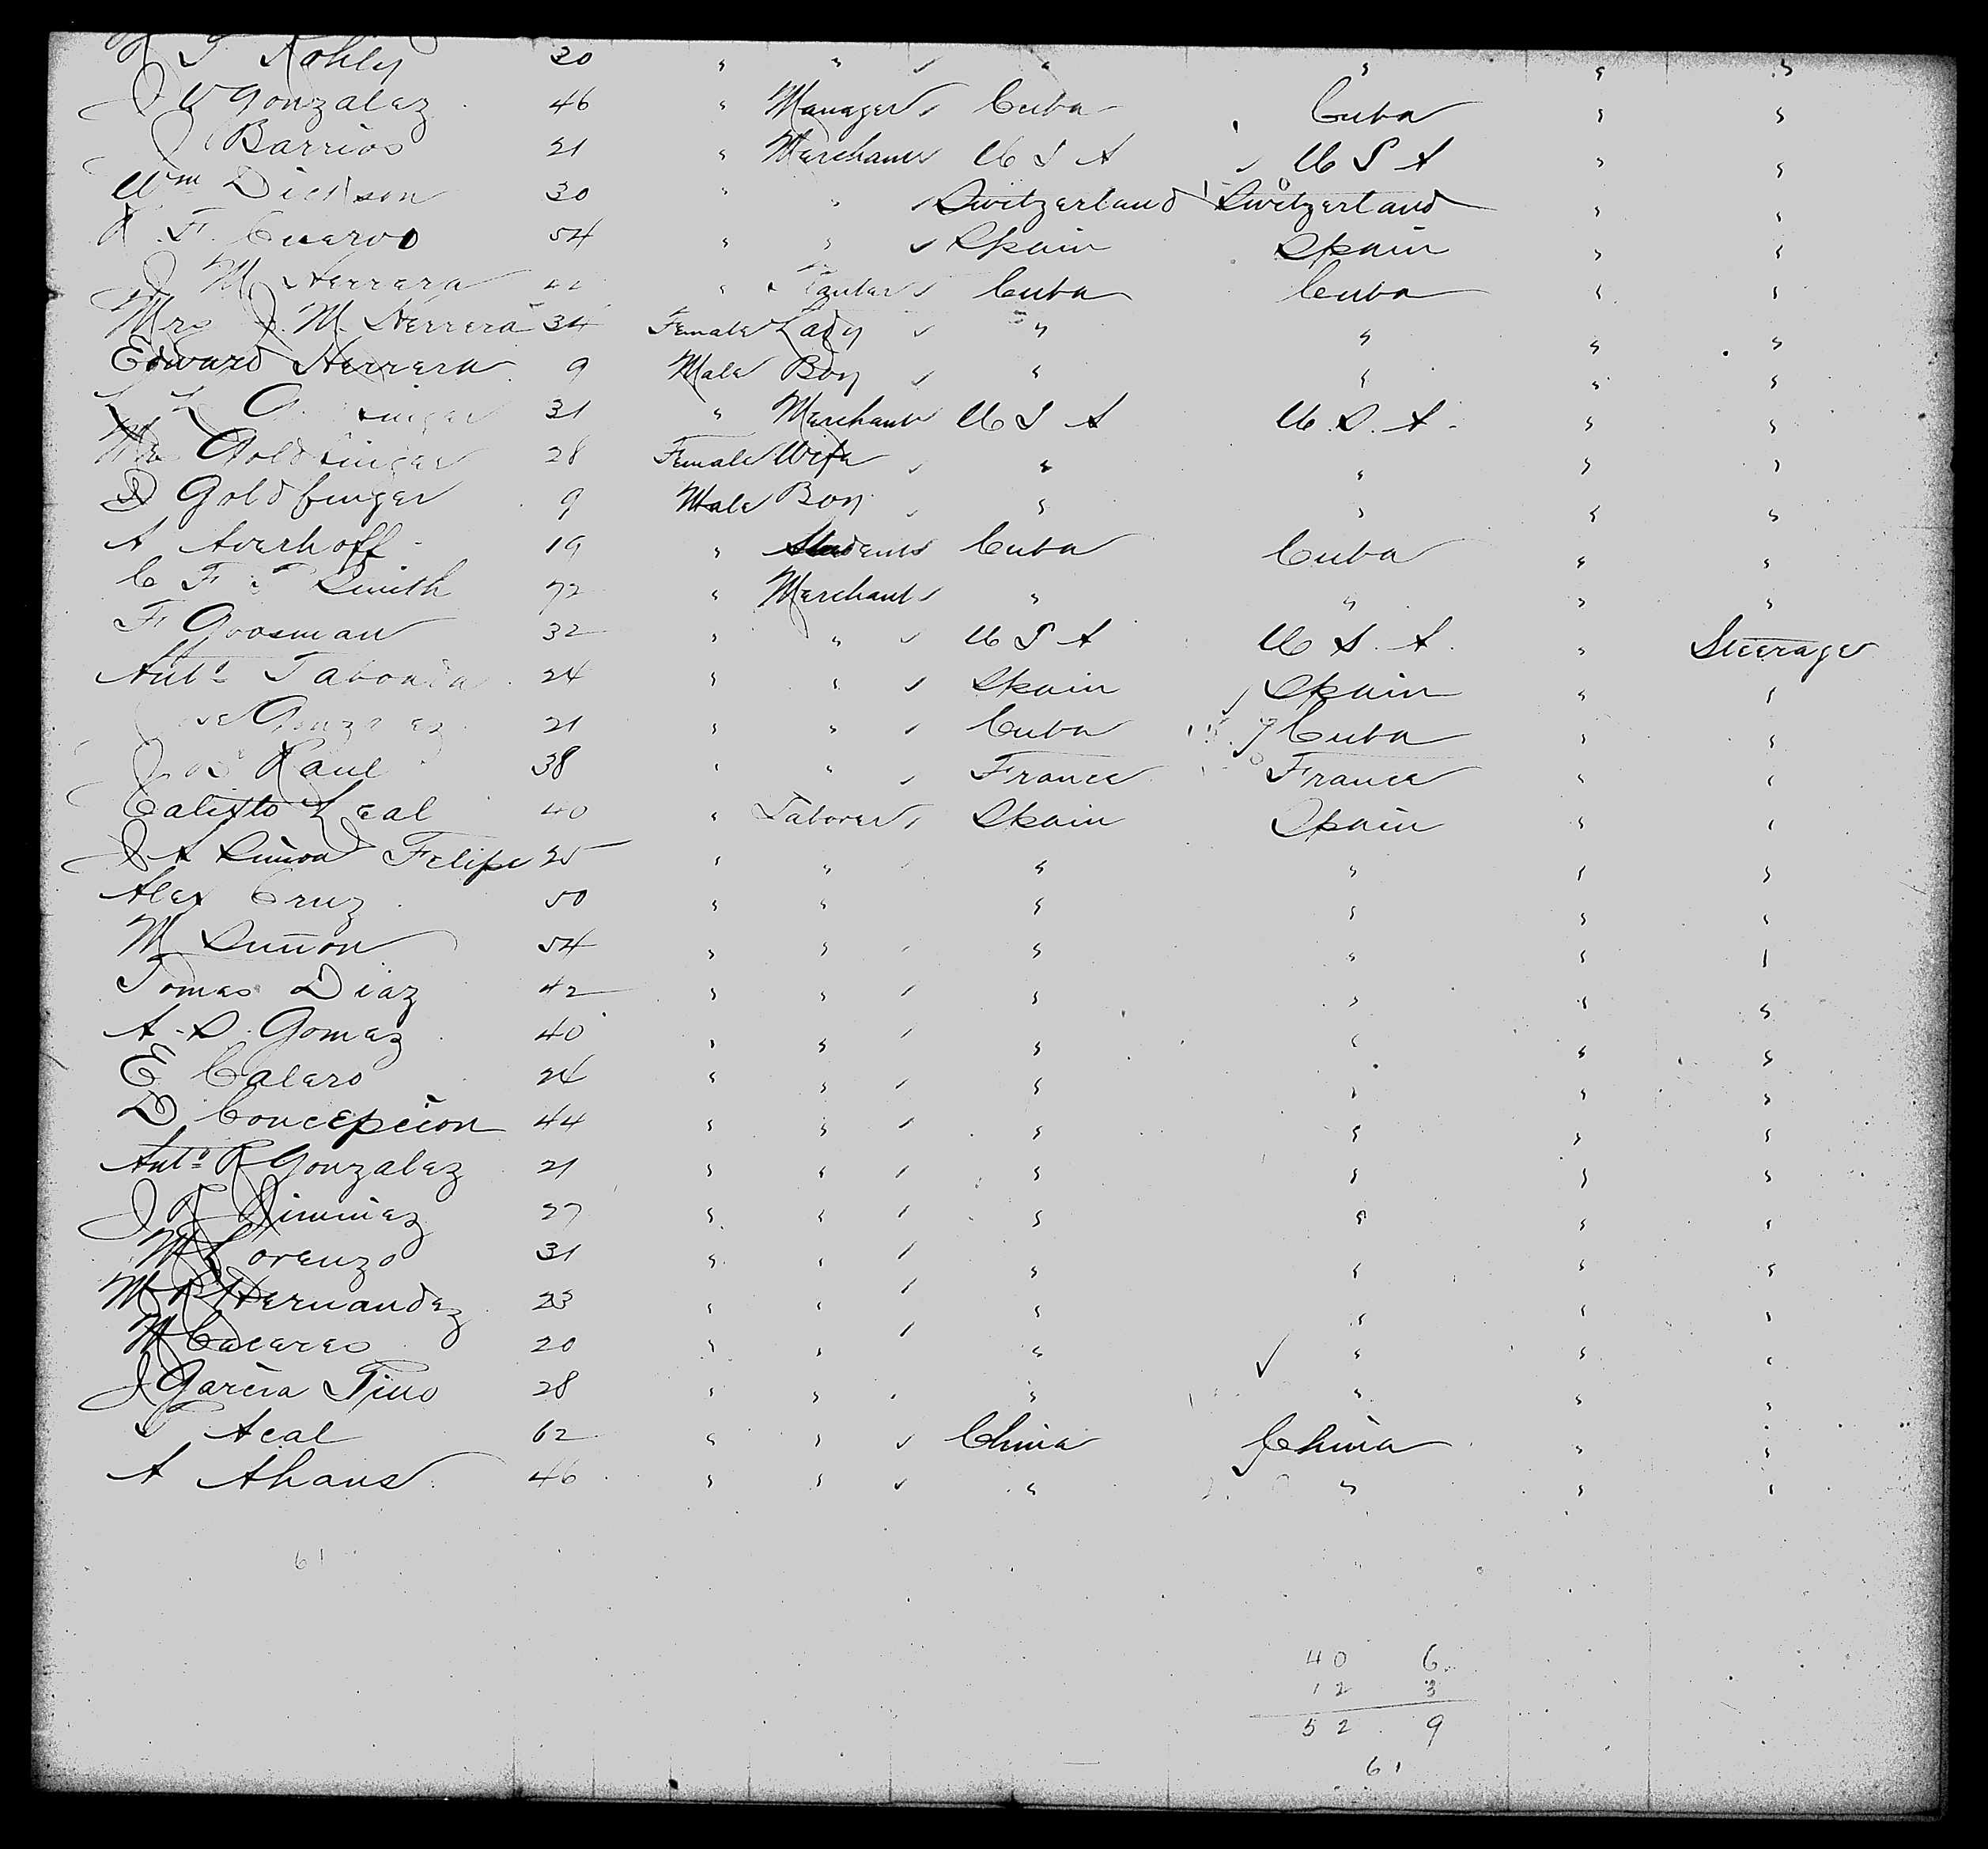 Kohly 30 " " " " " "
J V Gonzalez 46 " Manager Cuba Cuba " "
J Barrios 21 " Merchant U S A U S A " "
Wm Dickson 30 " " Switzerland Switzerland " "
R. F. Cuervo 54 " " Spain Spain " "
J M Herrera " Cuba Cuba " "
Mrs J. M. Herrera 34 Female Lady " " " "
Edward Herrera 9 Male Boy " " " "
31 " Merchant U S A U. S. A. " "
Mrs Goldfinger 28 Female Wife " " " "
D Goldfinger 9 Male Boy " " " "
A Averhoff 19 " Student Cuba Cuba " "
C F Smith 72 " Merchant " " " "
F Goosman 32 " " U S A U. S. A. " Steerage
Anto Taboada 24 " " Spain Spain " "
Jose Gonzalez 21 " " Cuba Cuba " "
Jos Raul 38 " " France France " "
Calixto Leal 40 " Laborer Spain Spain " "
J A Simon Felipe 25 " " " " " "
Alex Cruz 50 " " " " " "
M Simon 54 " " " " " "
Tomas Diaz 42 " " " " " "
A. S. Gomez 40 " " " " " "
E Calero 24 " " " " " "
D Concepcion 44 " " " " " "
Anto R Gonzalez 21 " " " " " "
J R Jiminez 27 " " " " " "
M Lorenzo 31 " " " " " "
M R Hernandez 23 " " " " " "
M Caceres 20 " " " " " "
J Garcia Pino 28 " " " " " "
Acal 62 " " China China " "
A Ahans 46 " " " " " "
61
40 6
12 3
52 9
61